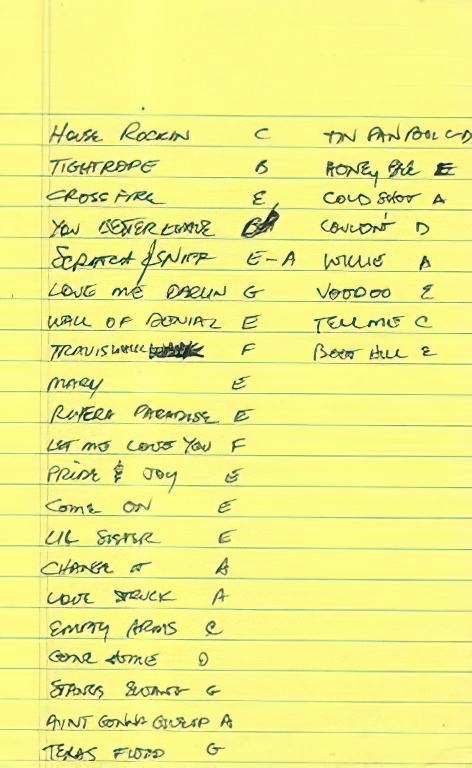 HOUSE ROCKIN C
TIGHTROPE B
CROSSFIRE E
YOU BETTER LEAVE
SCRATCH & SNIFF E-A
LOVE ME DARLIN G
WALL OF DENIAL E
TRAVIS WALK F
MARY E
RIVERA PARADISE E
LET ME LOVE YOU F
PRIDE & JOY E
COME ON E
LIL SISTER E
CHANGE IT A
LOVE STRUCK A
EMPTY ARMS C
GONE HOME D
STANGS SWANG G
AINT GONNA GIVEUP A
TEXAS FLOOD G
TIN PAN C-D
HONEY BEE E
COLD SHOT A
COULDN'T D
WILLIE A
VOODOO E
TELL ME C
BOOT HILL E